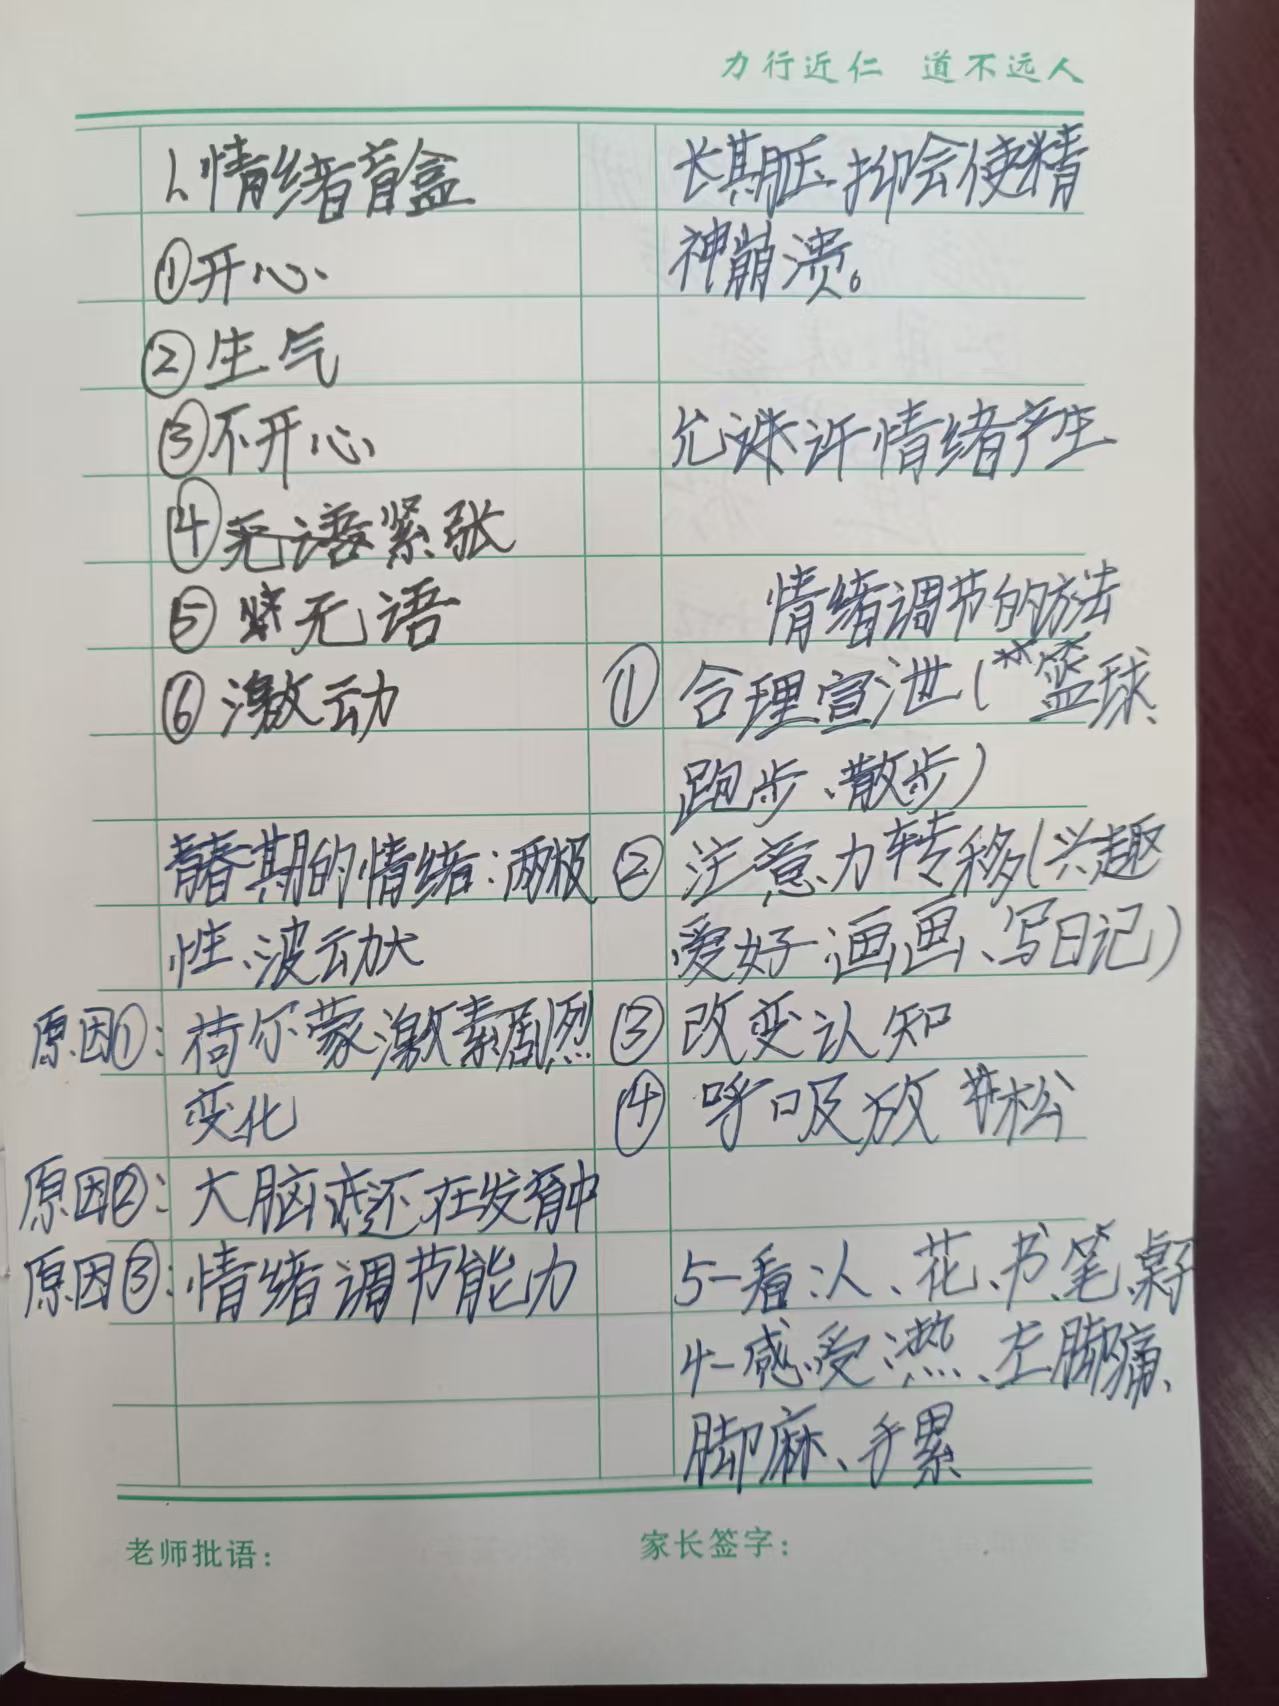 力行近仁 道不远人
1、情绪盲盒
①开心
②生气
③不开心
④无语紧张
⑤无语
⑥激动
青春期的情绪：两极
性、波动大
原因①：荷尔蒙激素剧烈
变化
原因②：大脑还在发育中
原因③：情绪调节能力
长期压抑会使精
神崩溃。
允许情绪产生
情绪调节的方法
①合理宣泄（篮球、
跑步、散步）
②注意力转移（兴趣
爱好：画画、写日记）
③改变认知
④呼吸放松
5—看：人、花、书、笔、桌子
4—感受：热、左脚痛、
脚麻、手累
老师批语：
家长签字：